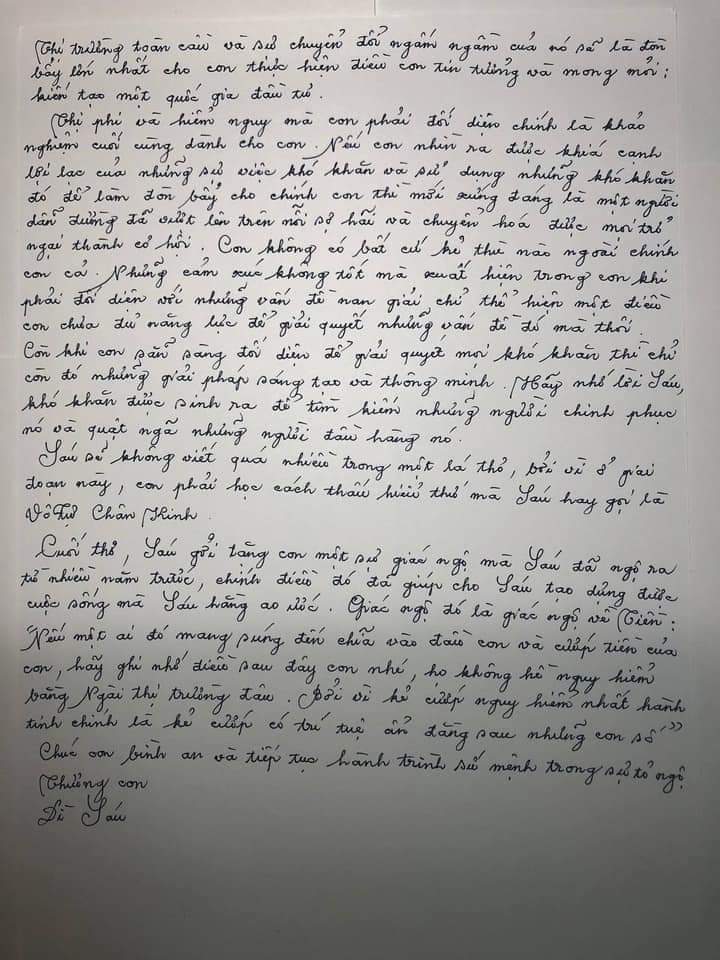 Thị trường toàn cầu và sự chuyển đổi ngấm ngầm của nó sẽ là đòn
bẩy lớn nhất cho con thực hiện điều con tin tưởng và mong mỏi:
kiến tạo một quốc gia đầu tư.
Thị phi và hiểm nguy mà con phải đối diện chính là khảo
nghiệm cuối cùng dành cho con. Nếu con nhìn ra được khía cạnh
lợi lạc của những sự việc khó khăn và sử dụng những khó khăn
đó để làm đòn bẩy cho chính con thì mới xứng đáng là một người
dẫn đường đã vượt lên trên nỗi sợ hãi và chuyển hoá được mọi trở
ngại thành cơ hội. Con không có bất cứ kẻ thù nào ngoài chính
con cả. Những cảm xúc không tốt mà xuất hiện trong con khi
phải đối diện với những vấn đề nan giải chỉ thể hiện một điều
con chưa đủ năng lực để giải quyết những vấn đề đó mà thôi.
Còn khi con sẵn sàng đối diện để giải quyết mọi khó khăn thì chỉ
còn đó những giải pháp sáng tạo và thông minh. Hãy nhớ lời Sáu,
khó khăn được sinh ra để tìm kiếm những người chinh phục
nó và quật ngã những người đầu hàng nó.
Sáu sẽ không viết quá nhiều trong một lá thư, bởi vì ở giai
đoạn này, con phải học cách thấu hiểu thứ mà Sáu hay gọi là
Vô Tự Chân Kinh.
Cuối thư, Sáu gửi tặng con một sự giác ngộ mà Sáu đã ngộ ra
từ nhiều năm trước, chính điều đó đã giúp cho Sáu tạo dựng được
cuộc sống mà Sáu hằng ao ước. Giác ngộ đó là giác ngộ về Tiền:
"Nếu một ai đó mang súng đến chĩa vào đầu con và cướp tiền của
con, hãy ghi nhớ điều sau đây con nhé, họ không hề nguy hiểm
bằng Ngài thị trường đâu. Bởi vì kẻ cướp nguy hiểm nhất hành
tinh chính là kẻ cướp có trí tuệ ẩn đằng sau những con số"
Chúc con bình an và tiếp tục hành trình sứ mệnh trong sự tỏ ngộ
Thương con
Dì Sáu